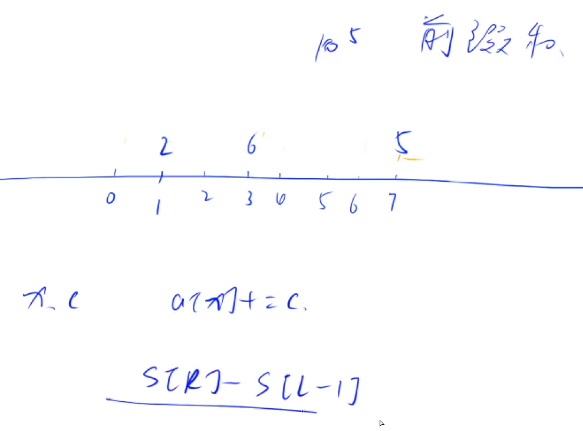 10^5 前缀和
2 6 5
0 1 2 3 4 5 6 7
x, c a[x] += c.
S[R] - S[L-1]